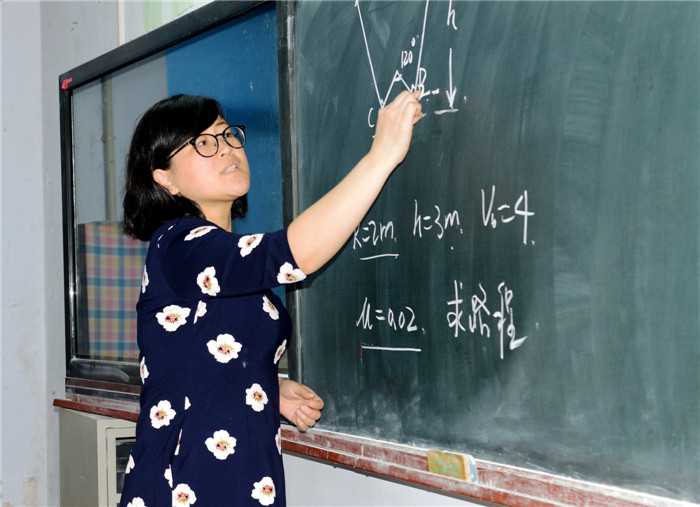 h
120°
C
R=2m. h=3m. V₀=4.
μ=0.02. 求路程.